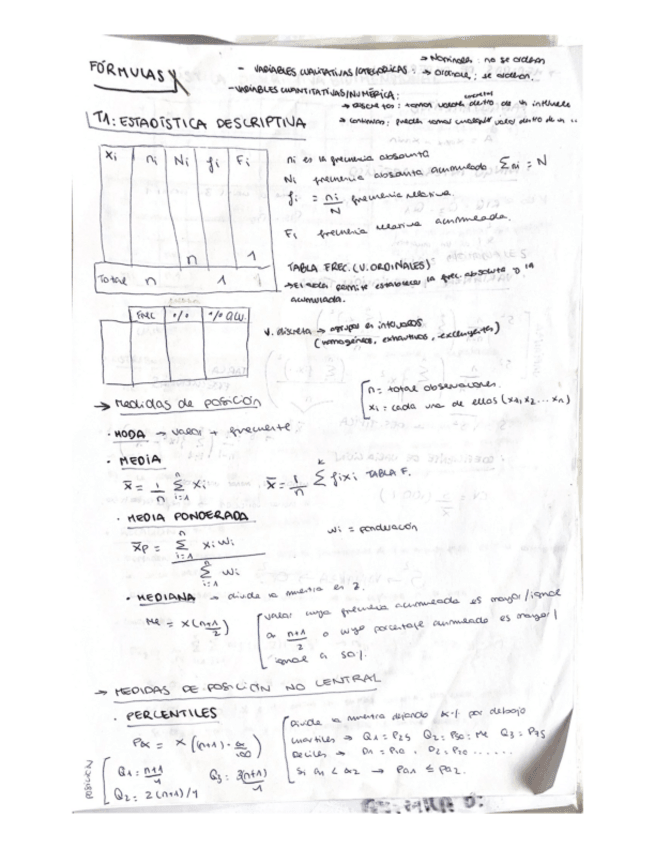 FÓRMULAS
- VARIABLES CUALITATIVAS/CATEGÓRICAS: → Nominales: no se ordenan
→ Ordinales: se ordenan.
- VARIABLES CUANTITATIVAS/NUMÉRICA:
→ Discretas: toman valores dentro de un intervalo
→ continuas: pueden tomar cualquier valor dentro de un ..
T1: ESTADÍSTICA DESCRIPTIVA
Xi ni Ni fi Fi
n 1
Total n 1
ni es la frecuencia absoluta
Ni frecuencia absoluta acumulada Σni = N
fi = ni/N frecuencia relativa.
Fi frecuencia relativa acumulada.
TABLA FREC. (V. ORDINALES)
→ Esta permite establecer la frec. absoluta y la
acumulada.
FREC % % ACU.
V. discreta → agrupar en intervalos
(homogéneos, exhaustivos, excluyentes)
n = total observaciones
xi = cada una de ellas (x1, x2 ... xn)
→ Medidas de posición
· MODA → valor + frecuente
· MEDIA
x̄ = 1/n Σ i=1 n xi
x̄ = 1/n Σ i=1 k fixi TABLA F.
· MEDIA PONDERADA
x̄p = Σ i=1 n xiwi / Σ i=1 n wi
wi = ponderación
· MEDIANA → divide la muestra en 2.
Me = x(n+1/2)
valor cuya frecuencia acumulada es mayor/igual
a n+1/2 o cuyo porcentaje acumulado es mayor/
igual a 50%.
→ MEDIDAS DE POSICIÓN NO CENTRAL
· PERCENTILES
Pα = x((n+1)·α/100)
Divide la muestra dejando α% por debajo
cuartiles → Q1 = P25 Q2 = P50 = Me Q3 = P75
Deciles → D1 = P10, D2 = P20 ......
Si α1 < α2 → Pα1 ≤ Pα2.
POSICIÓN
Q1: n+1/4
Q3: 3(n+1)/4
Q2: 2(n+1)/4